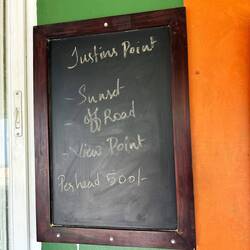 Justins Point
- Sunset
off Road
- View Point
Perhead 500/-